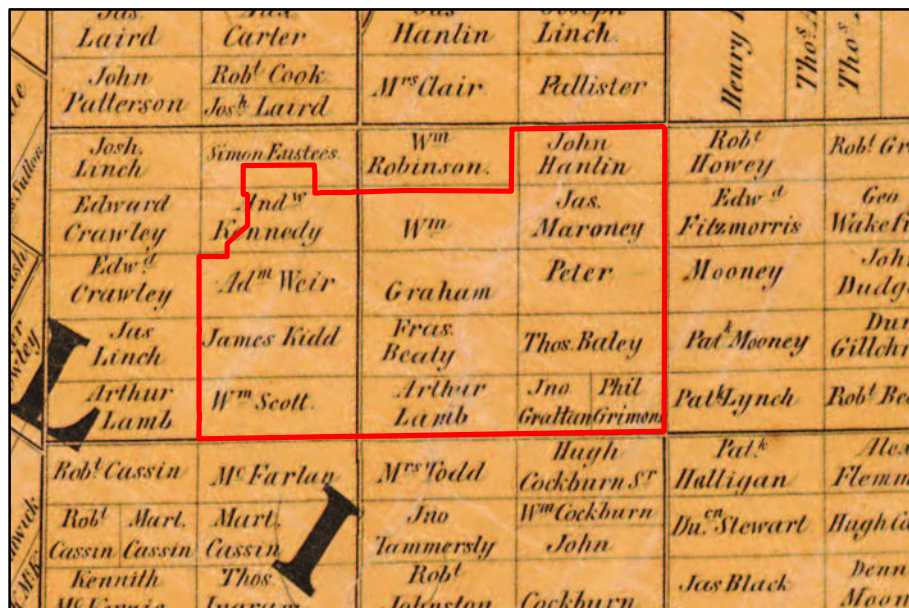 Laird
Carter
Hanlin
Joseph
Linch.
John
Patterson
Robt Cook
Josh Laird
Mrs Clair
Pallister
Henry
Thos.
Thos.
Josh.
Linch
Simon Eustees.
Wm
Robinson.
John
Hanlin
Robt
Howey
Robt Gr
Edward
Crawley
Andw
Kennedy
Wm
Jas.
Maroney
Edwd
Fitzmorris
Geo
Wakefi
Edwd
Crawley
Adm Weir
Graham
Peter
Mooney
John
Dudg
Jas
Linch
James Kidd
Fras.
Beaty
Thos. Baley
Patk Mooney
Dun
Gillchr
Arthur
Lamb
Wm Scott.
Arthur
Lamb
Jno
Grattan
Phil
Grimons
Patk Lynch
Robt Bea
L
Robt Cassin
Mc Farlan
Mrs Todd
Hugh
Cockburn Sr
Pat.k
Halligan
Alex
Flemm
Robt
Cassin
Mart.
Cassin
Mart.
Cassin
I
Jno
Tammersly
Wm Cockburn
John
Cockburn
Dun.cn Stewart
Hugh Ca
Kennith
Thos.
Ingram
Robt
Johnston
Jas Black
Denn
Moon